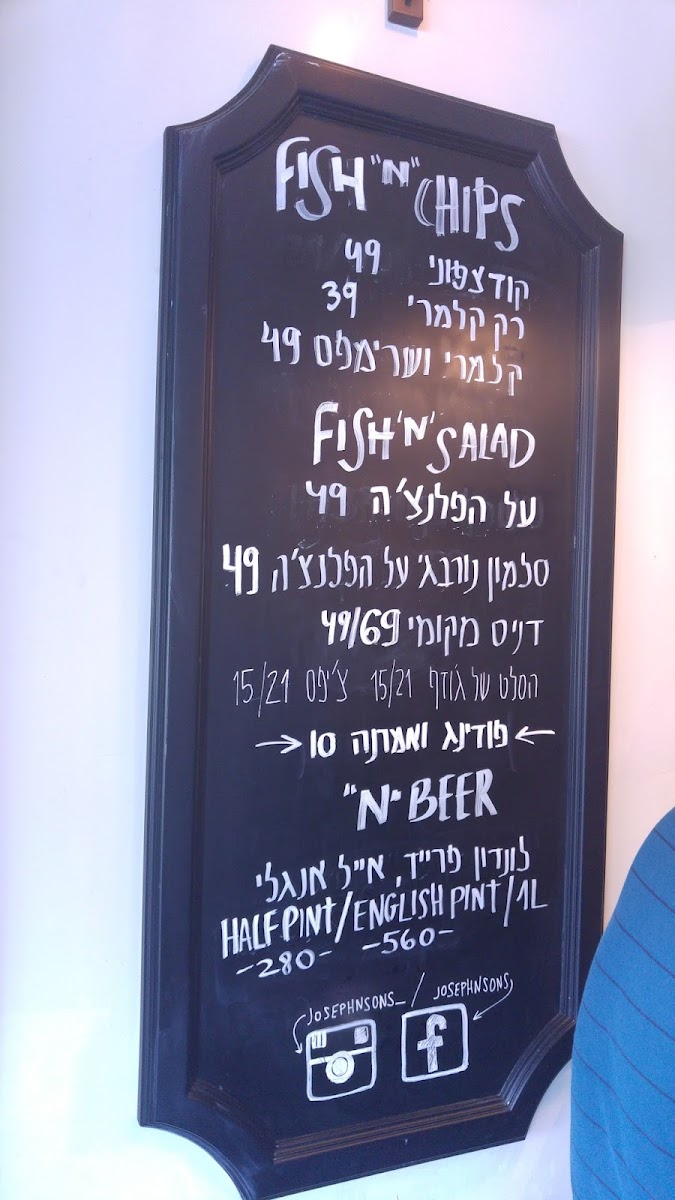 FISH "N" CHIPS
קוד צפוני 49
רק קלמרי 39
קלמרי ושרימפס 49
FISH 'N' SALAD
על הפלנצ'ה 49
סלמון נורבגי על הפלנצ'ה 49
דניס מקומי 49/69
הסלט של ג'וזף 15/21 צ'יפס 15/21
פודינג ואמרנה 10
"N" BEER
לונדון פרייד, אייל אנגלי
HALF PINT/ENGLISH PINT/1L
-280- -560-
JOSEPHNSONS_ / JOSEPHNSONS
f